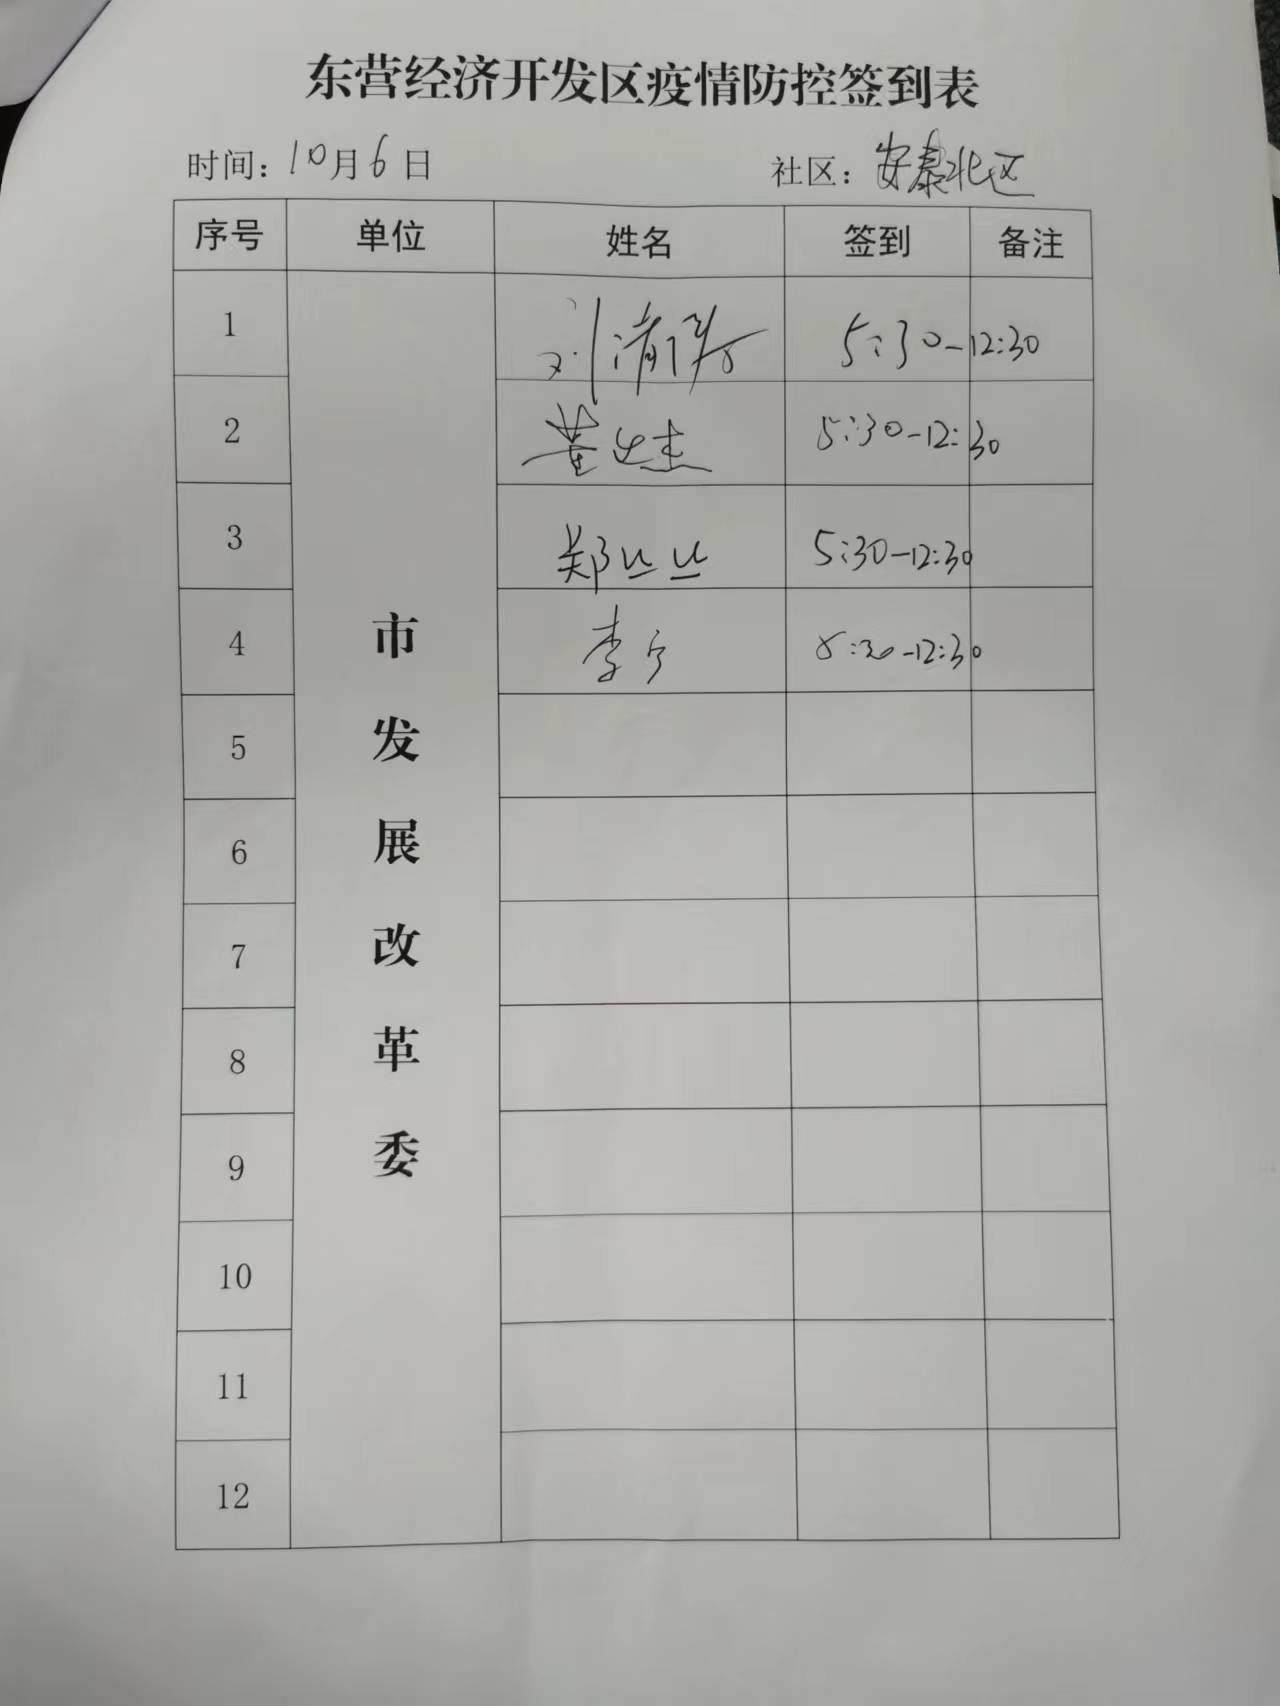 东营经济开发区疫情防控签到表
时间：10月6日 社区：安泰北区
序号 单位 姓名 签到 备注
市发展改革委
1 刘清 5:30-12:30
2 董 5:30-12:30
3 郑丛丛 5:30-12:30
4 李宁 5:30-12:30
5
6
7
8
9
10
11
12